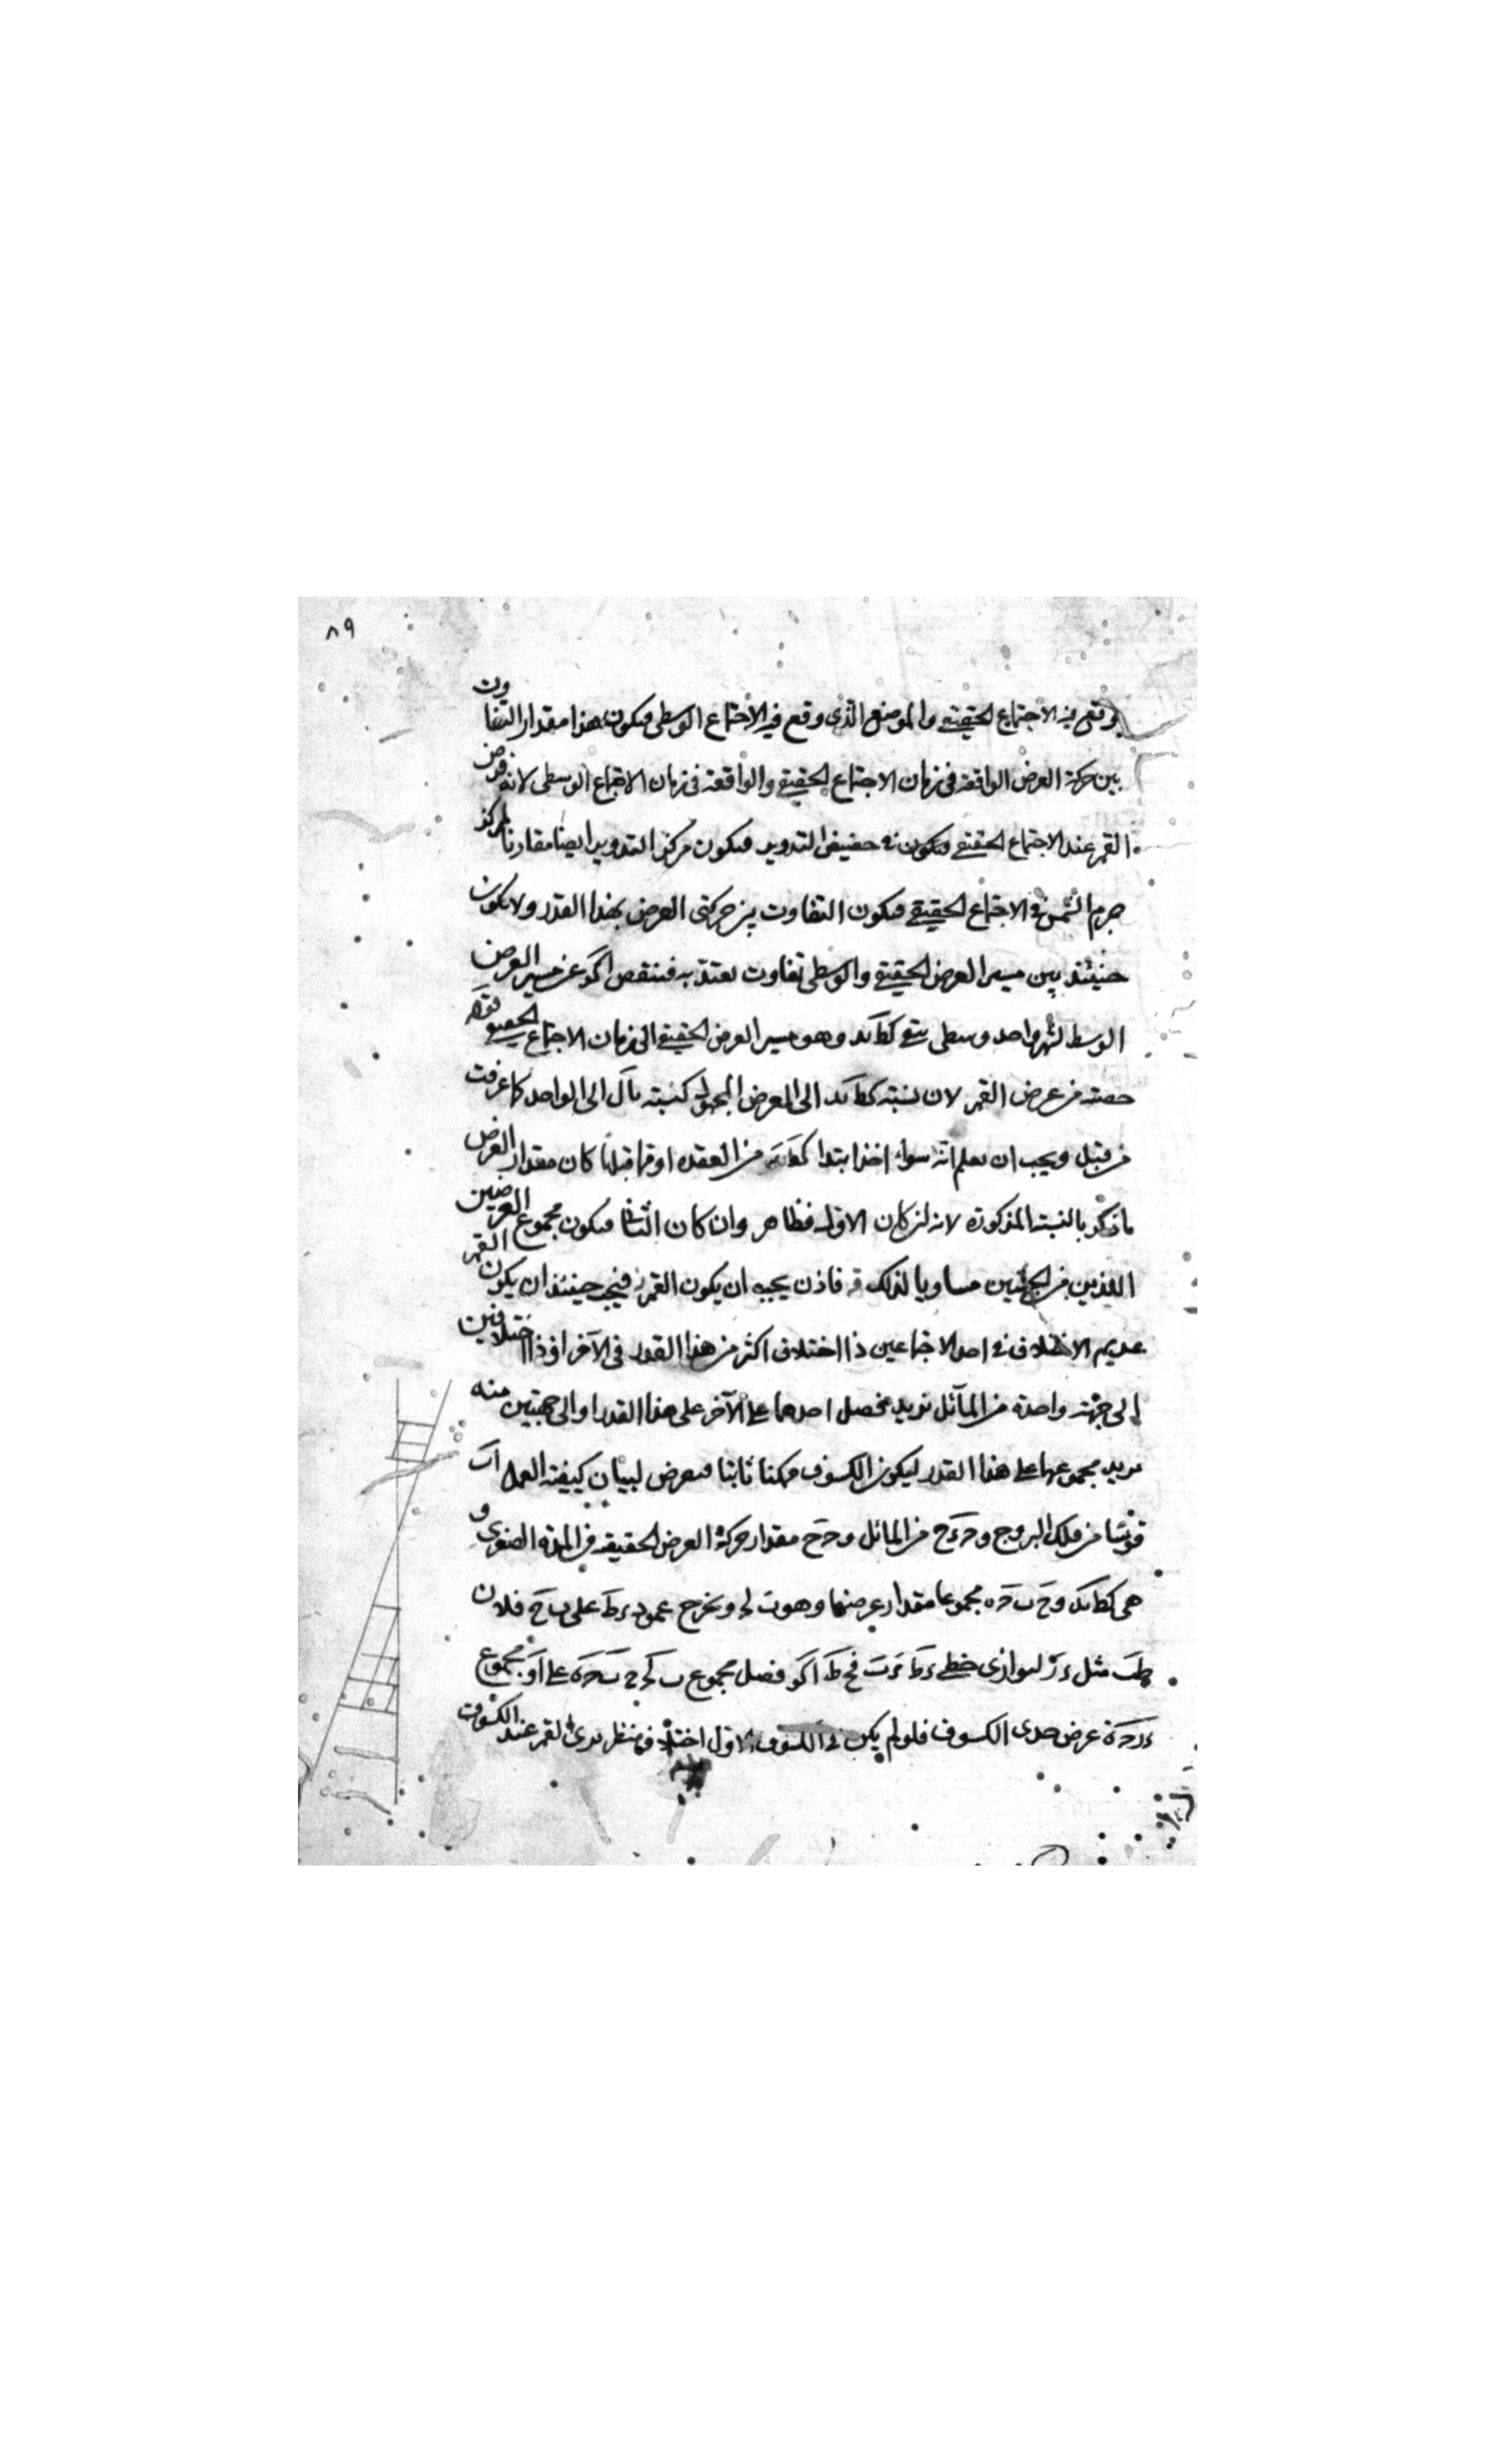 ٨٩
وقع فيه الاجتماع الحقيقى والموضع الذى وقع فيه الاجتماع الوسطى فيكون هذا مقدار التفاوت
بين حركة العرض الواقعة فى زمان الاجتماع الحقيقى والواقعة فى زمان الاجتماع الوسطى لانه فرض
القمر عند الاجتماع الحقيقى فيكون فى حضيض التدوير فيكون مركز التدوير ايضا مقارنا لمركز
جرم الشمس فى الاجتماع الحقيقى فيكون التفاوت بين حركتى العرض بهذا القدر ولا يكون
حينئذ بين مسير العرض الحقيقى والوسطى تفاوت يعتد به فننقص اكو عن مسير العرض
الوسط لشهر واحد وسطى يبقى كط كد وهو مسير العرض الحقيقى الى زمان الاجتماع الحقيقى
حصته من عرض القمر لان نسبة كط كد الى العرض المجهول كنسبة يال الى الواحد كما عرفت
من قبل ويجب ان يعلم انه سواء اخذ ابتدا من العقدة او مما قبلها كان مقدار العرض
ما ذكر بالنسبة المذكورة لانه ان كان الاول فظاهر وان كان الثانى فيكون مجموع العرضين
اللذين من الجهتين مساويا لذلك فاذن يجب ان يكون القمر فيجب حينئذ ان يكون القمر
عديم الاختلاف فى احد الاجتماعين ذا اختلاف اكثر من هذا القدر فى الآخر او ذا اختلافين
الى جهة واحدة من المائل يزيد فضل احدهما على الآخر على هذا القدر او الى جهتين منه
يزيد مجموعهما على هذا القدر ليكون الكسوف ممكنا ثابتا فنعرض لبيان كيفية العمل اب
قوسا من فلك البروج و من المائل و مقدار حركة العرض الحقيقية فى المدة الصغرى و
هى كط كد و مجموعا مقدار عرضهما وهو ب لح ونخرج عمود على فلان
طب مثل لتوازى خطى اكو فضل مجموع على او مجموع
عرض حدى الكسوف فلو لم يكن فى الكسوف الاول اختلاف منظر يرى القمر عند الكسوف